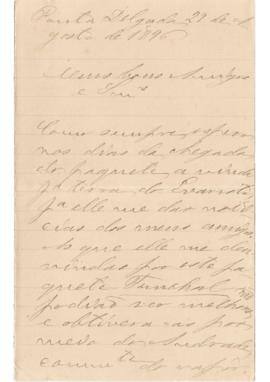 Ponta Delgada 29 de A
gosto de 1896
Meus bons Amigos
e Snrs
Como sempre, espero
nos dias da chegada
do paquete a vinda
pa terra do Evaristo
pa elle me dar noti
cias dos meus amigos.
As que elle me deu
vindas por este pa
quete Funchal não
podião ser melhores
e obtivera-as por
meio do Andrade
comm te do vapor.